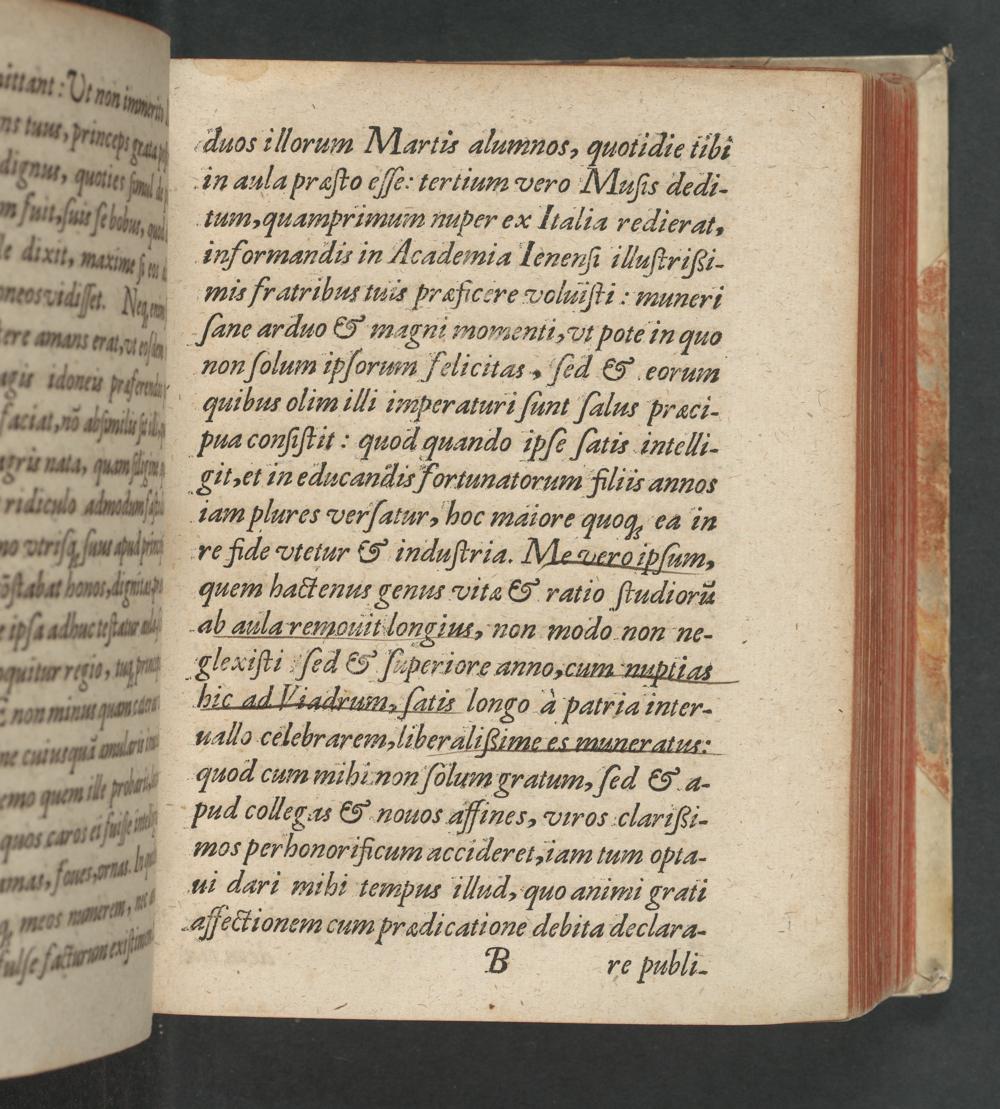 ittant: Ut non immerito
ns tuus, princeps grata
dignus, quoties simul
m fuit, suis se bobus, quod
le dixit, maxime si eos
oneos vidisset. Neq; enim
tere amans erat, vt eosdem
agis idoneis præferendos
faciat, nō absimilis sit illi
agris nata, quam
ridiculo admodum
mo vtrisq; suus apud
cōstabat honos, dignitas
e ipsa adhuc testatur aula
oquitur regio, tuq; princeps
non minus quam cætera
ne cuiusquā
emo quem ille probarit
quos caros ei fuisse
amas, foues, ornas. In
q; meos numerem, nec
fulse facturum existimem
duos illorum Martis alumnos, quotidie tibi
in aula præsto esse: tertium vero Musis dedi-
tum, quamprimum nuper ex Italia redierat,
informandis in Academia Ienensi illustrißi-
mis fratribus tuis præficere voluisti: muneri
sane arduo & magni momenti, vt pote in quo
non solum ipsorum felicitas, sed & eorum
quibus olim illi imperaturi sunt salus præci-
pua consistit: quod quando ipse satis intelli-
git, et in educandis fortunatorum filiis annos
iam plures versatur, hoc maiore quoq; ea in
re fide vtetur & industria. Me vero ipsum,
quem hactenus genus vitæ & ratio studiorū
ab aula remouit longius, non modo non ne-
glexisti sed & superiore anno, cum nuptias
hic ad Viadrum, satis longo à patria inter-
uallo celebrarem, liberalißime es muneratus:
quod cum mihi non solum gratum, sed & a-
pud collegas & nouos affines, viros clarißi-
mos perhonorificum accideret, iam tum opta-
ui dari mihi tempus illud, quo animi grati
affectionem cum prædicatione debita declara-
B re publi-